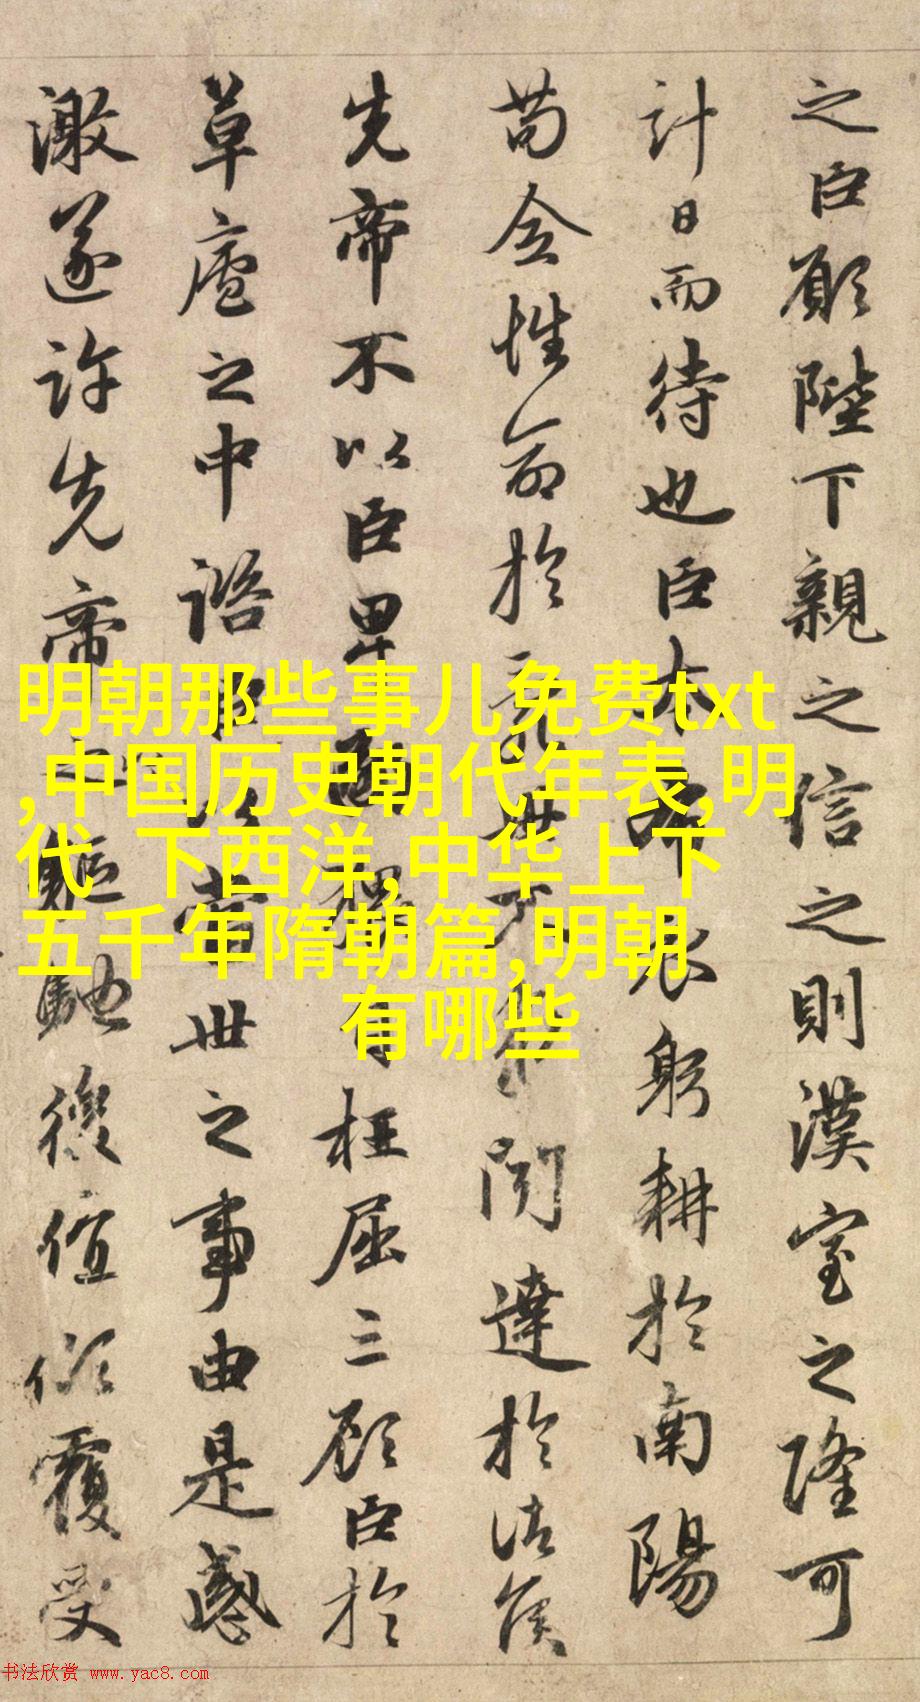 之臣願陛下親之信之則漢室之隆可
計日而待也臣本布衣躬耕於南陽
苟全性命於亂世不求聞達於諸侯
先帝不以臣卑鄙猥自枉屈三顧臣於
草廬之中諮臣以當世之事由是感
激遂許先帝以驅馳後值傾覆受
明朝那些事儿免费txt
,中国历史朝代年表,明
代 下西洋,中华上下
五千年隋朝篇,明朝
有哪些
书法欣赏 www.yac8.com